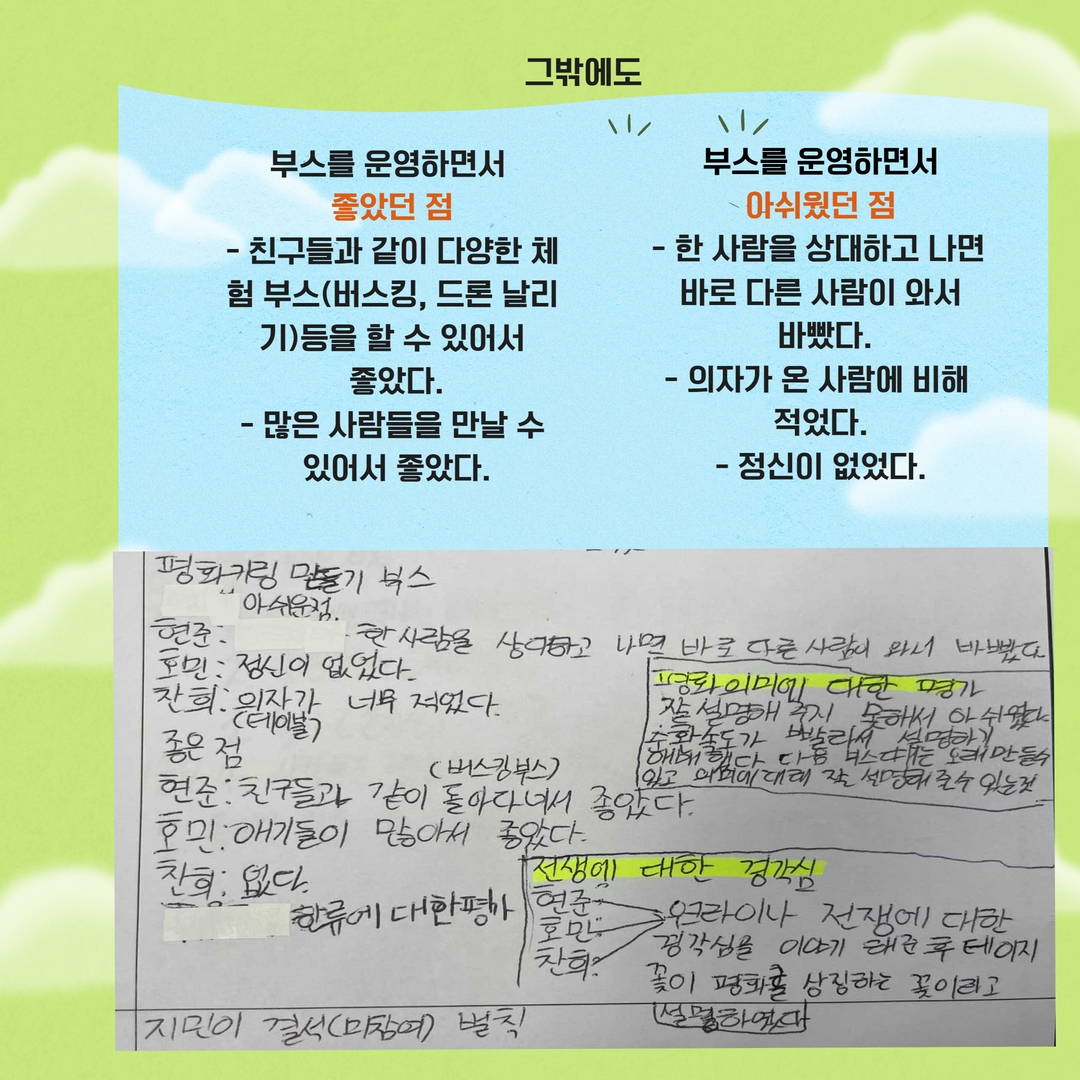 그밖에도
부스를 운영하면서
좋았던 점
- 친구들과 같이 다양한 체
험 부스(버스킹, 드론 날리
기)등을 할 수 있어서
좋았다.
- 많은 사람들을 만날 수
있어서 좋았다.
부스를 운영하면서
아쉬웠던 점
- 한 사람을 상대하고 나면
바로 다른 사람이 와서
바빴다.
- 의자가 온 사람에 비해
적었다.
- 정신이 없었다.
평화키링 만들기 부스
아쉬운점.
현준: 한 사람을 상대하고 나면 바로 다른 사람이 와서 바빴다.
호민: 정신이 없었다.
찬희: 의자가 너무 적었다.
(테이블)
좋은 점
(버스킹부스)
현준: 친구들과 같이 돌아다녀서 좋았다.
호민: 애기들이 많아서 좋았다.
찬희: 없다.
한류에 대한평가
평화의미에 대한 평가
잘 설명해 주지 못해서 아쉬웠다.
순환속도가 빨라서 설명하기
다음 부스때는 오래 만들수
있고 의미에 대해 잘 설명해 줄 수 있는것
전쟁에 대한 경각심
현준:
호민:
찬희:
우크라이나 전쟁에 대한
경각심을 이야기 해준 후 데이지
꽃이 평화를 상징하는 꽃이라고
설명하였다
지민이 결석(미참여) 벌칙